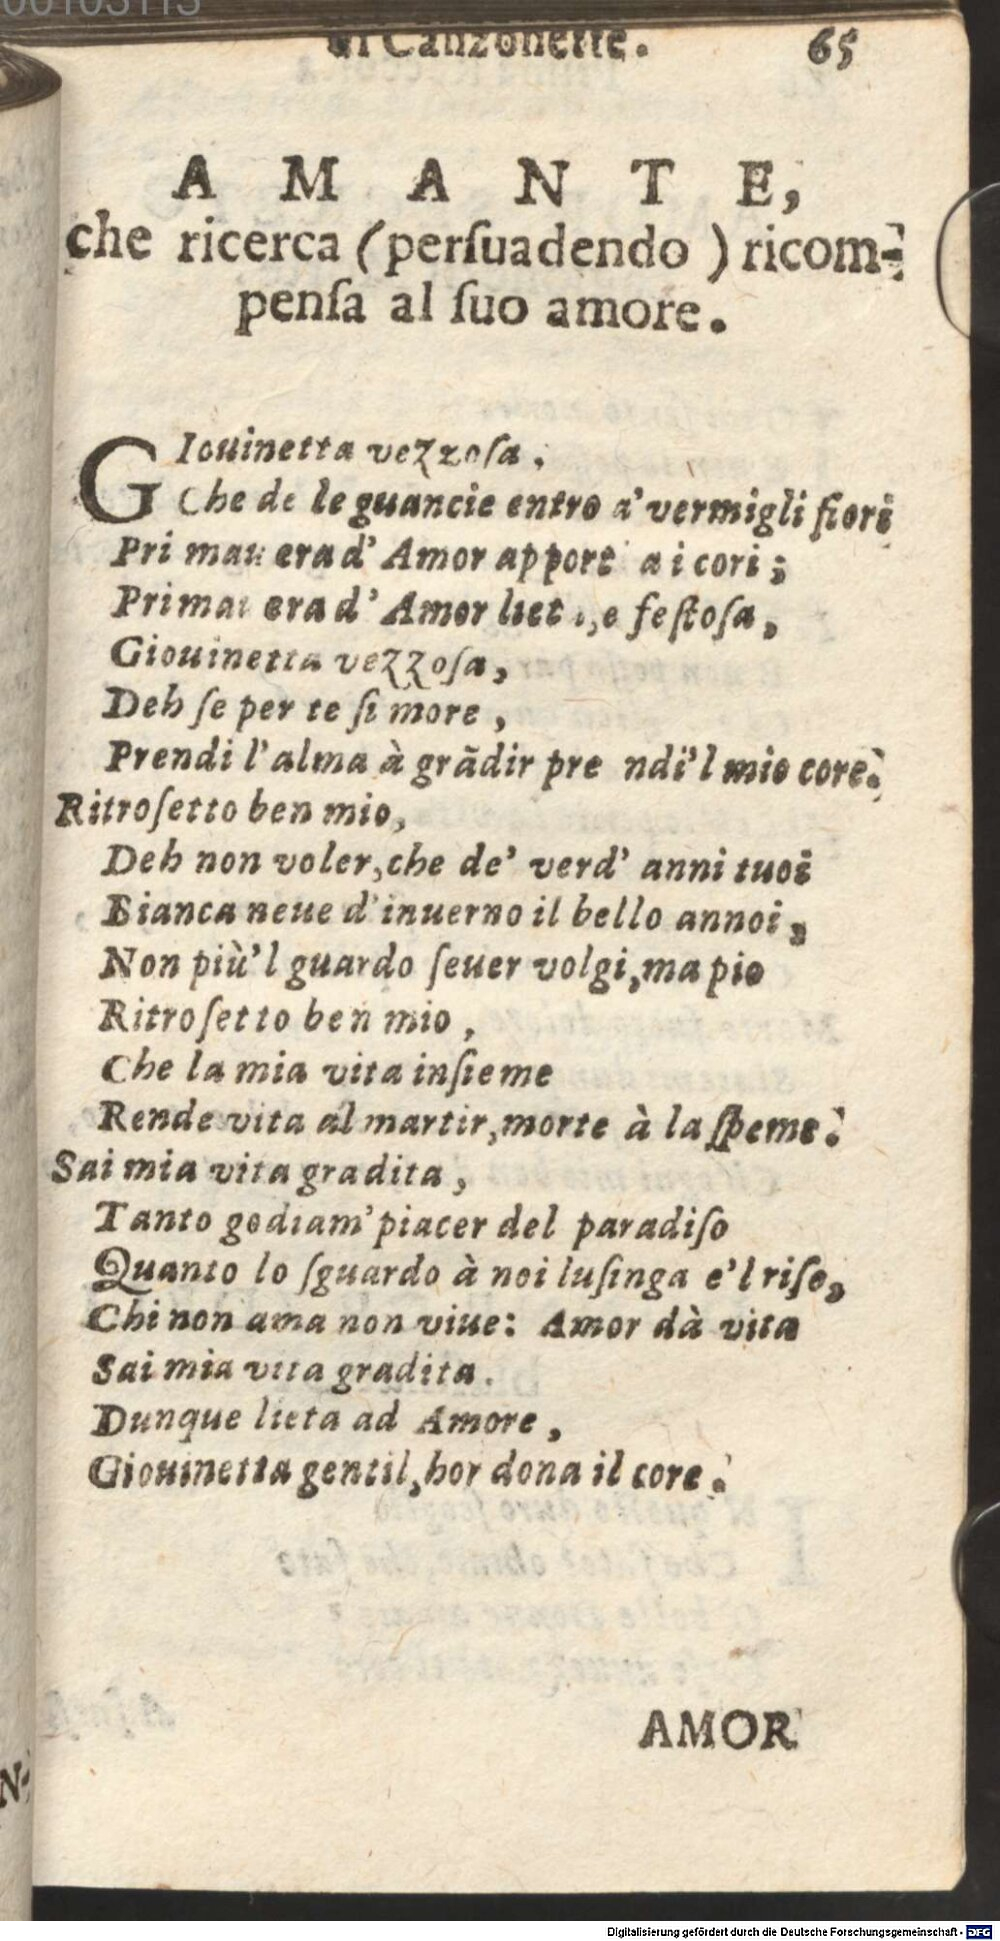 di Canzonette. 65
AMANTE,
che ricerca (perſuadendo) ricom-
penſa al ſuo amore.
GIouinetta vezzoſa,
Che de le guancie entro a' vermigli fiori
Pri mauera d' Amor apport a i cori;
Primauera d' Amor lieta, e feſtoſa,
Giouinetta vezzoſa,
Deh ſe per te ſi more,
Prendi l'alma à grãdir pre ndi'l mio core.
Ritroſetto ben mio,
Deh non voler, che de' verd' anni tuoi
Bianca neue d'inuerno il bello annoi,
Non più'l guardo ſeuer volgi, ma pio
Ritroſetto ben mio,
Che la mia vita inſieme
Rende vita al martir, morte à la ſpeme.
Sai mia vita gradita,
Tanto godiam' piacer del paradiſo
Quanto lo ſguardo à noi luſinga e'l riſo,
Chi non ama non viue: Amor dà vita
Sai mia vita gradita.
Dunque lieta ad Amore,
Giouinetta gentil, hor dona il core.
AMOR
N-
Digitalisierung gefördert durch die Deutsche Forschungsgemeinschaft - DFG